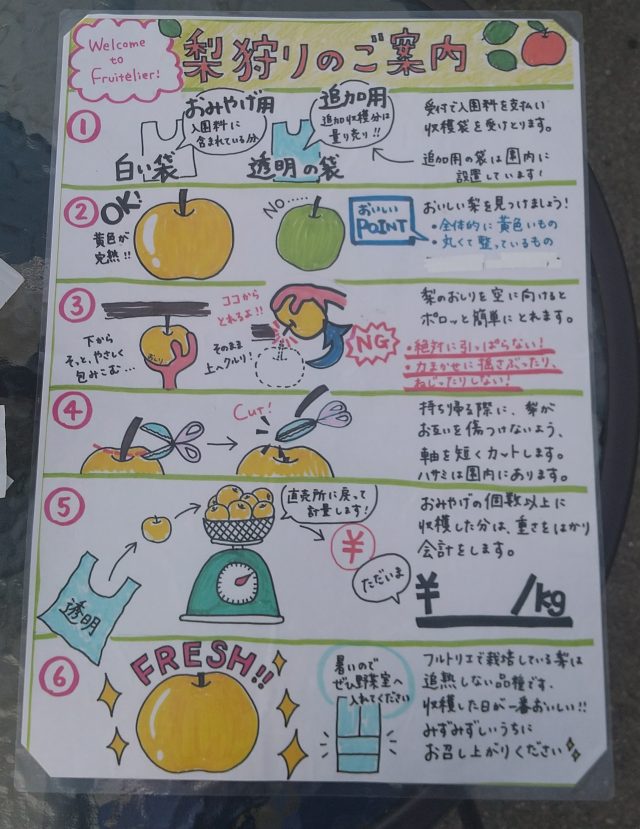 Welcome
to
Fruitelier!
梨狩りのご案内
①
おみやげ用
入園料に
含まれている分
白い袋
追加用
追加収穫分は
量り売り!!
透明の袋
受付で入園料を支払い
収穫袋を受けとります。
追加用の袋は園内に
設置しています!
②
OK!
黄色が
完熟!!
NO・・・・・
おいしい
POINT
おいしい梨を見つけましょう!
・全体的に黄色いもの
・丸くて整っているもの
③
下から
そっと、やさしく
包みこむ…
おしり
ココから
とれるよ!!
そのまま
上へクルリ!
NG
梨のおしりを空に向けると
ポロッと簡単にとれます。
・絶対に引っぱらない!
・力まかせに揺さぶったり、
ねじったりしない!
④
Cut!
持ち帰る際に、梨が
お互いを傷つけないよう、
軸を短くカットします。
ハサミは園内にあります。
⑤
透明
直売所に戻って
計量します!
¥
ただいま
おみやげの個数以上に
収穫した分は、重さをはかり
会計をします。
¥ /kg
⑥
FRESH!!
暑いので
ぜひ野菜室へ
入れてください
フルトリエで栽培している梨は
追熟しない品種です。
収穫した日が一番おいしい!!
みずみずしいうちに
お召し上がりください